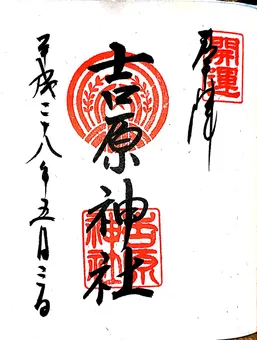 開運
奉拝
吉原神社
吉原神社
平成二十八年五月二日